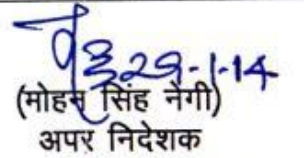 29-1-14
(मोहन सिंह नेगी)
अपर निदेशक